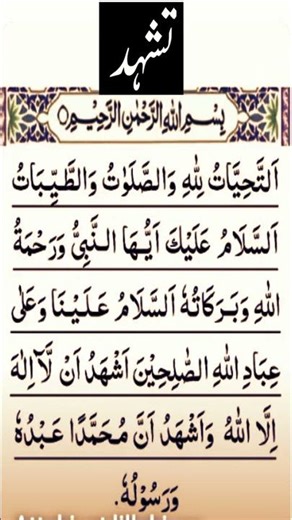 تشہد
بِسْمِ اللهِ الرَّحْمٰنِ الرَّحِيْمِ
اَلتَّحِيَّاتُ لِلّٰهِ وَالصَّلَوٰتُ وَالطَّيِّبَاتُ
اَلسَّلَامُ عَلَيْكَ اَيُّهَا النَّبِيُّ وَرَحْمَةُ
اللهِ وَبَرَكَاتُهٗ اَلسَّلَامُ عَلَيْنَا وَعَلٰى
عِبَادِ اللهِ الصّٰلِحِيْنَ اَشْهَدُ اَنْ لَّآ اِلٰهَ
اِلَّا اللهُ وَاَشْهَدُ اَنَّ مُحَمَّدًا عَبْدُهٗ
وَرَسُوْلُهٗ.